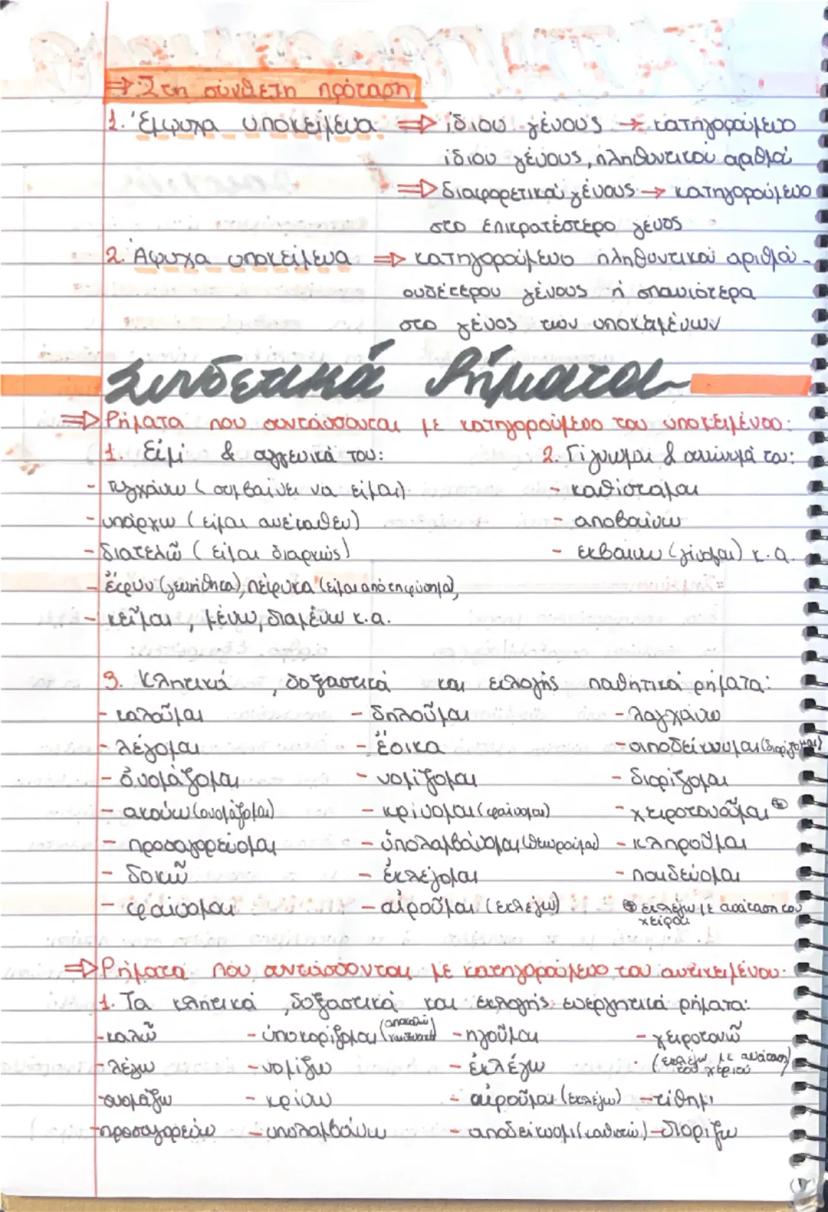 ⇒ Στη σύνθετη πρόταση
1. Έμψυχα υποκείμενα ⇒ ίδιου γένους → κατηγορούμενο
ίδιου γένους, πληθυντικού αριθμού
⇒ διαφορετικού γένους → κατηγορούμενο
στο επικρατέστερο γένος
2. Άψυχα υποκείμενα ⇒ κατηγορούμενο πληθυντικού αριθμού
ουδέτερου γένους ή σπανιότερα
στο γένος των υποκειμένων
Συνδετικά Ρήματα
⇒ Ρήματα που συντάσσονται με κατηγορούμενο του υποκειμένου:
1. Είμί & συγγενικά του: 2. Γίγνομαι & συνώνυμά του:
- τυγχάνω (συμβαίνει να είμαι) - καθίσταμαι
- υπάρχω (είμαι ανέκαθεν) - αποβαίνω
- διατελῶ (είμαι διαρκώς) - εκβαίνω (γίνομαι) κ.α.
- ἔφυν (γεννήθηκα), πέφυκα (είμαι από τη φύση μου),
- κεῖμαι, μένω, διαμένω κ.α.
3. Κλητικά, δοξαστικά και εκλογής παθητικά ρήματα:
- καλοῦμαι - δηλοῦμαι - λαγχάνω
- λέγομαι - ἔοικα - αποδείκνυμαι (διορίζομαι)
- ὀνομάζομαι - νομίζομαι - διορίζομαι
- ακούω (ονομάζομαι) - κρίνομαι (φαίνομαι) - χειροτονοῦμαι ⊛
- προσαγορεύομαι - ὑπολαμβάνομαι (θεωρούμαι) - κληροῦμαι
- δοκῶ - ἐκλέγομαι - παιδεύομαι
- φαίνομαι - αἱροῦμαι (εκλέγω) ⊛ εκλέγω με ανάταση του
χεριού
⇒ Ρήματα που συντάσσονται με κατηγορούμενο του αντικειμένου:
1. Τα κλητικά, δοξαστικά και εκλογής ενεργητικά ρήματα:
- καλῶ - ὑποκορίζομαι (αποκαλώ - ηγοῦμαι - χειροτονῶ
- λέγω - νομίζω - ἐκλέγω (εκλέγω με ανάταση
του χεριού)
- ονομάζω - κρίνω - αἱροῦμαι (εκλέγω) - τίθημι
- προσαγορεύω - υπολαμβάνω - αποδείκνυμι (καθιστώ) - διορίζω